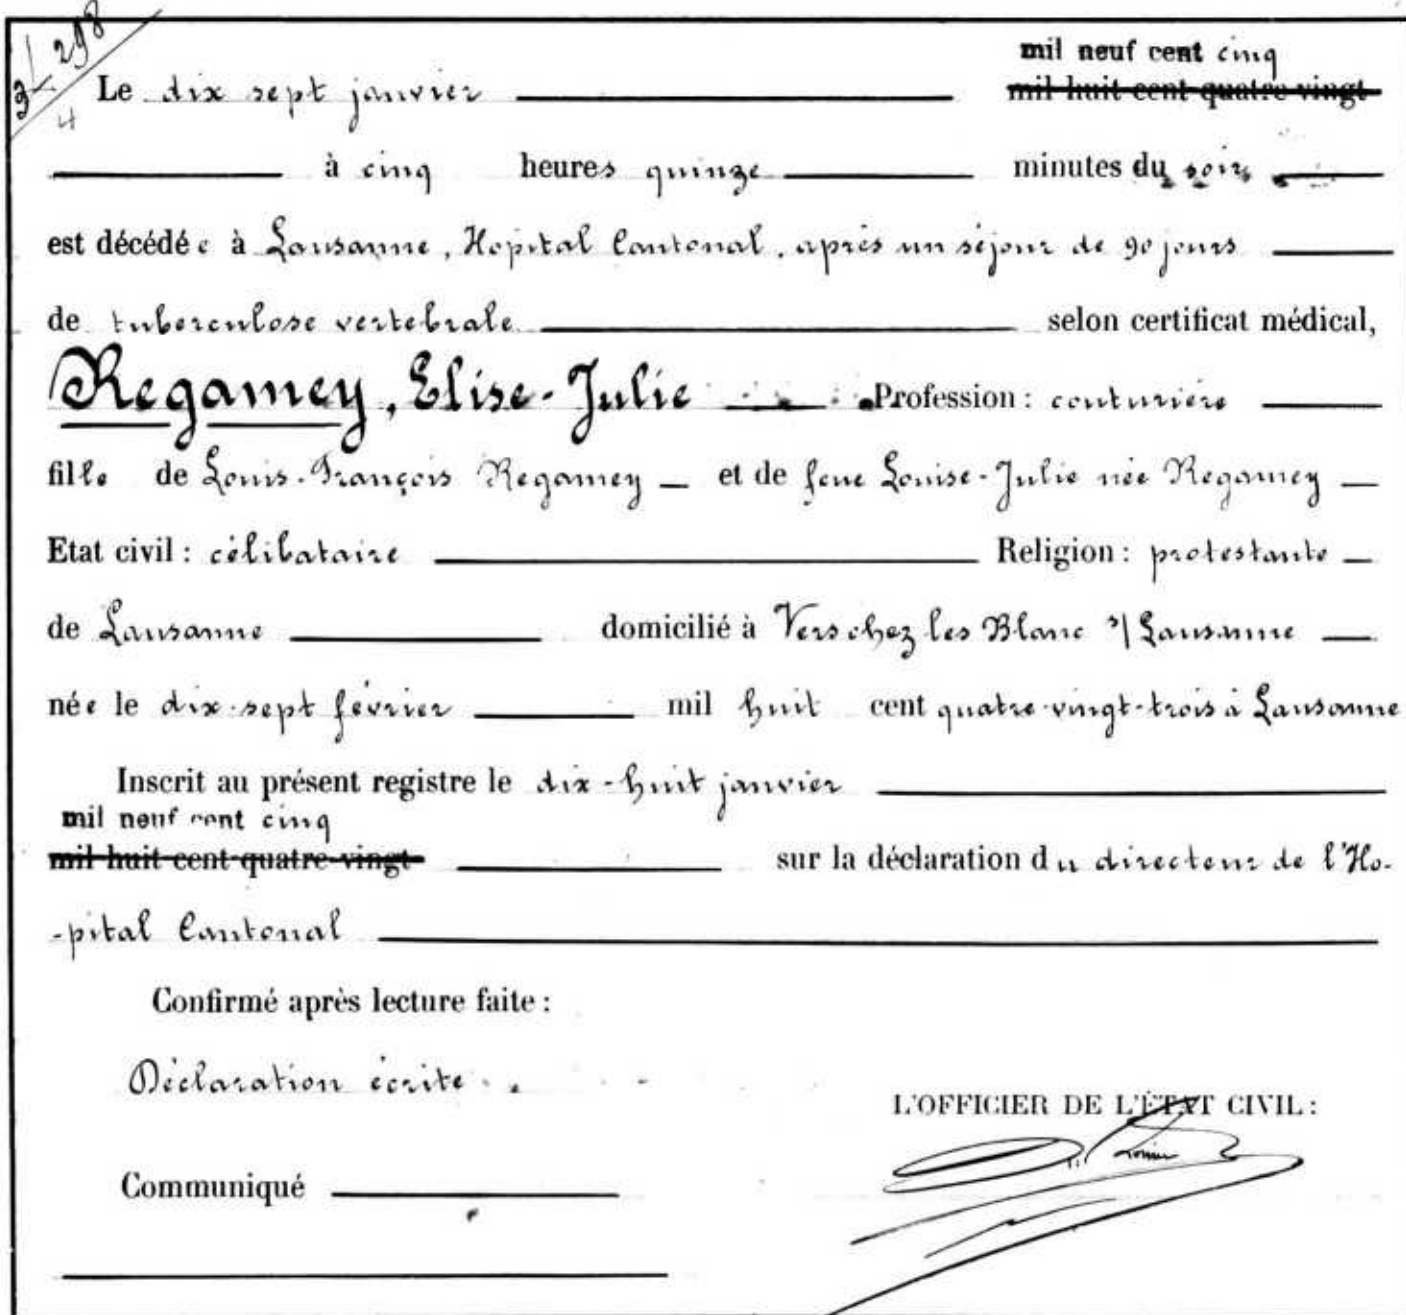 298
3
4
mil neuf cent cinq
Le dix sept janvier mil huit cent quatre vingt
à cinq heures quinze minutes du soir
est décédée à Lausanne, Hopital Cantonal, après un séjour de 90 jours
de tuberculose vertebrale selon certificat médical,
Regamey, Elise-Julie Profession : couturière
fille de Louis-François Regamey et de feue Louise-Julie née Regamey
Etat civil : célibataire Religion : protestante
de Lausanne domicilié à Vers chez les Blanc s/ Lausanne
née le dix-sept février mil huit cent quatre-vingt-trois à Lausanne
Inscrit au présent registre le dix-huit janvier
mil neuf cent cinq
mil huit cent quatre-vingt sur la déclaration du directeur de l'Ho-
-pital Cantonal
Confirmé après lecture faite :
Déclaration écrite.
L'OFFICIER DE L'ÉTAT CIVIL :
Communiqué